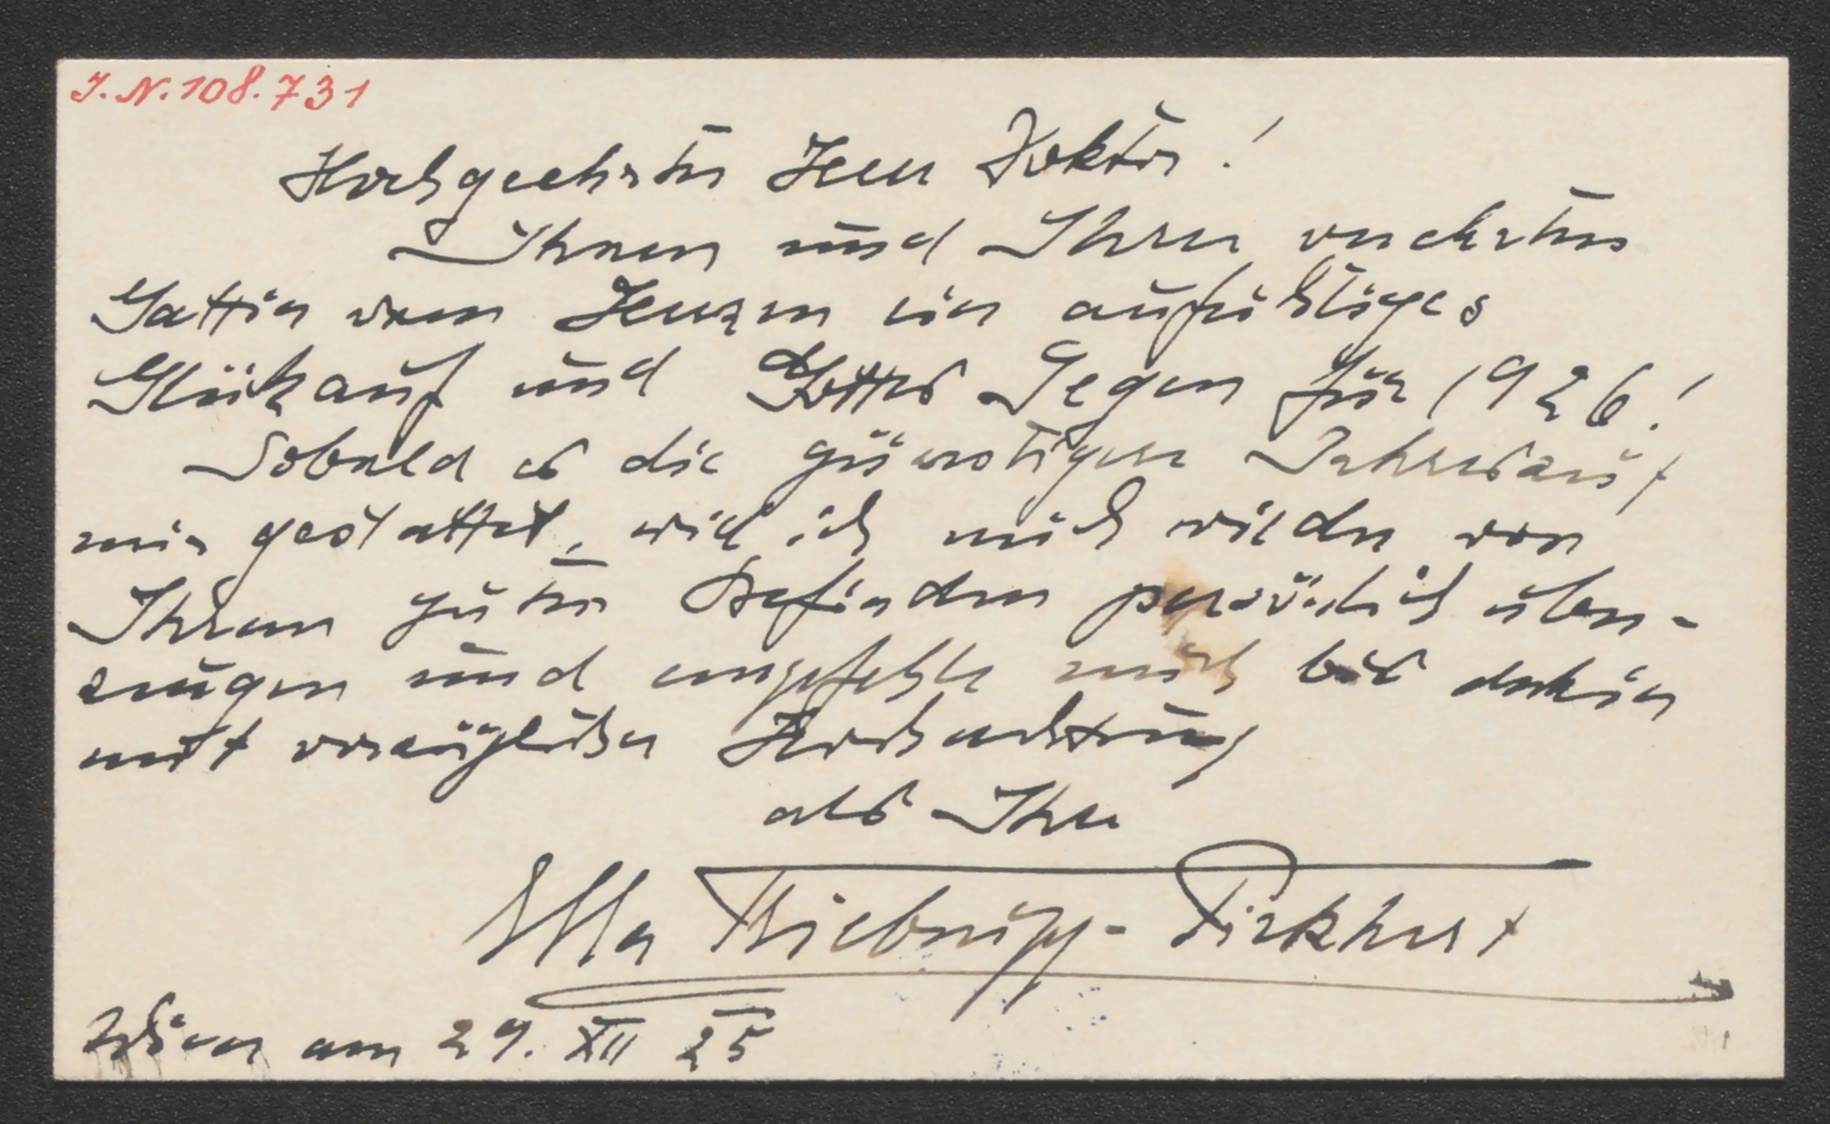 J. N. 108.731
Hochgeehrter Herr Doktor!
Ihnen und Ihrer verehrten
Gattin vom Herzen ein aufrichtiges
Glückauf und Gottes Segen für 1926!
Sobald es die günstigere Jahreszeit
mir gestattet, will ich mich wieder von
Ihrem guten Befinden persönlich über-
zeugen und empfehle mich bis dahin
mit vorzüglicher Hochachtung
als Ihre
Ella Triebnigg-Pirkhert
Wien am 29. XII 25